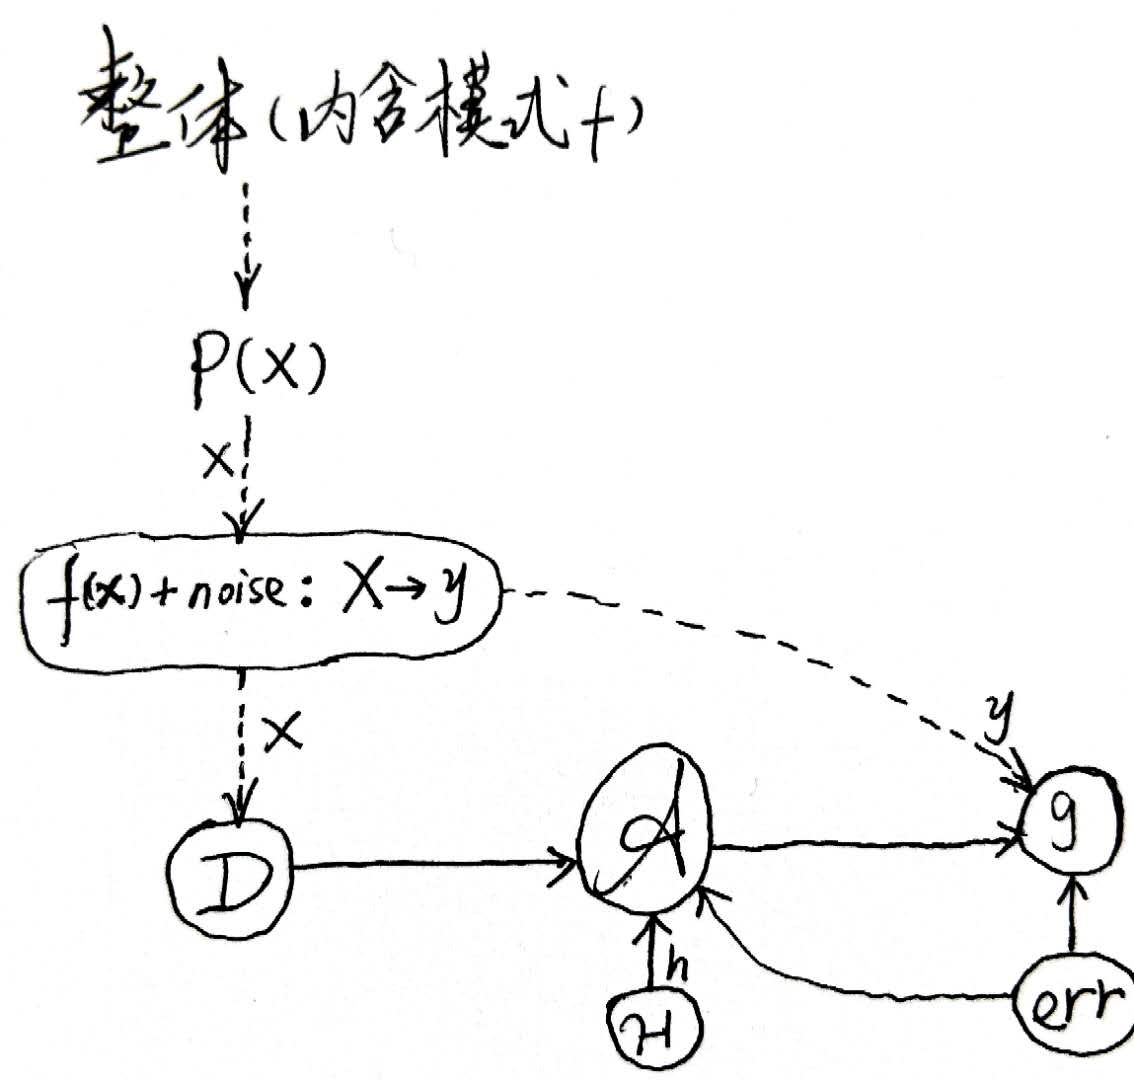 整体(内含模式f)
P(X)
X
f(x)+noise: X→y
X
y
D
A
g
h
H
err